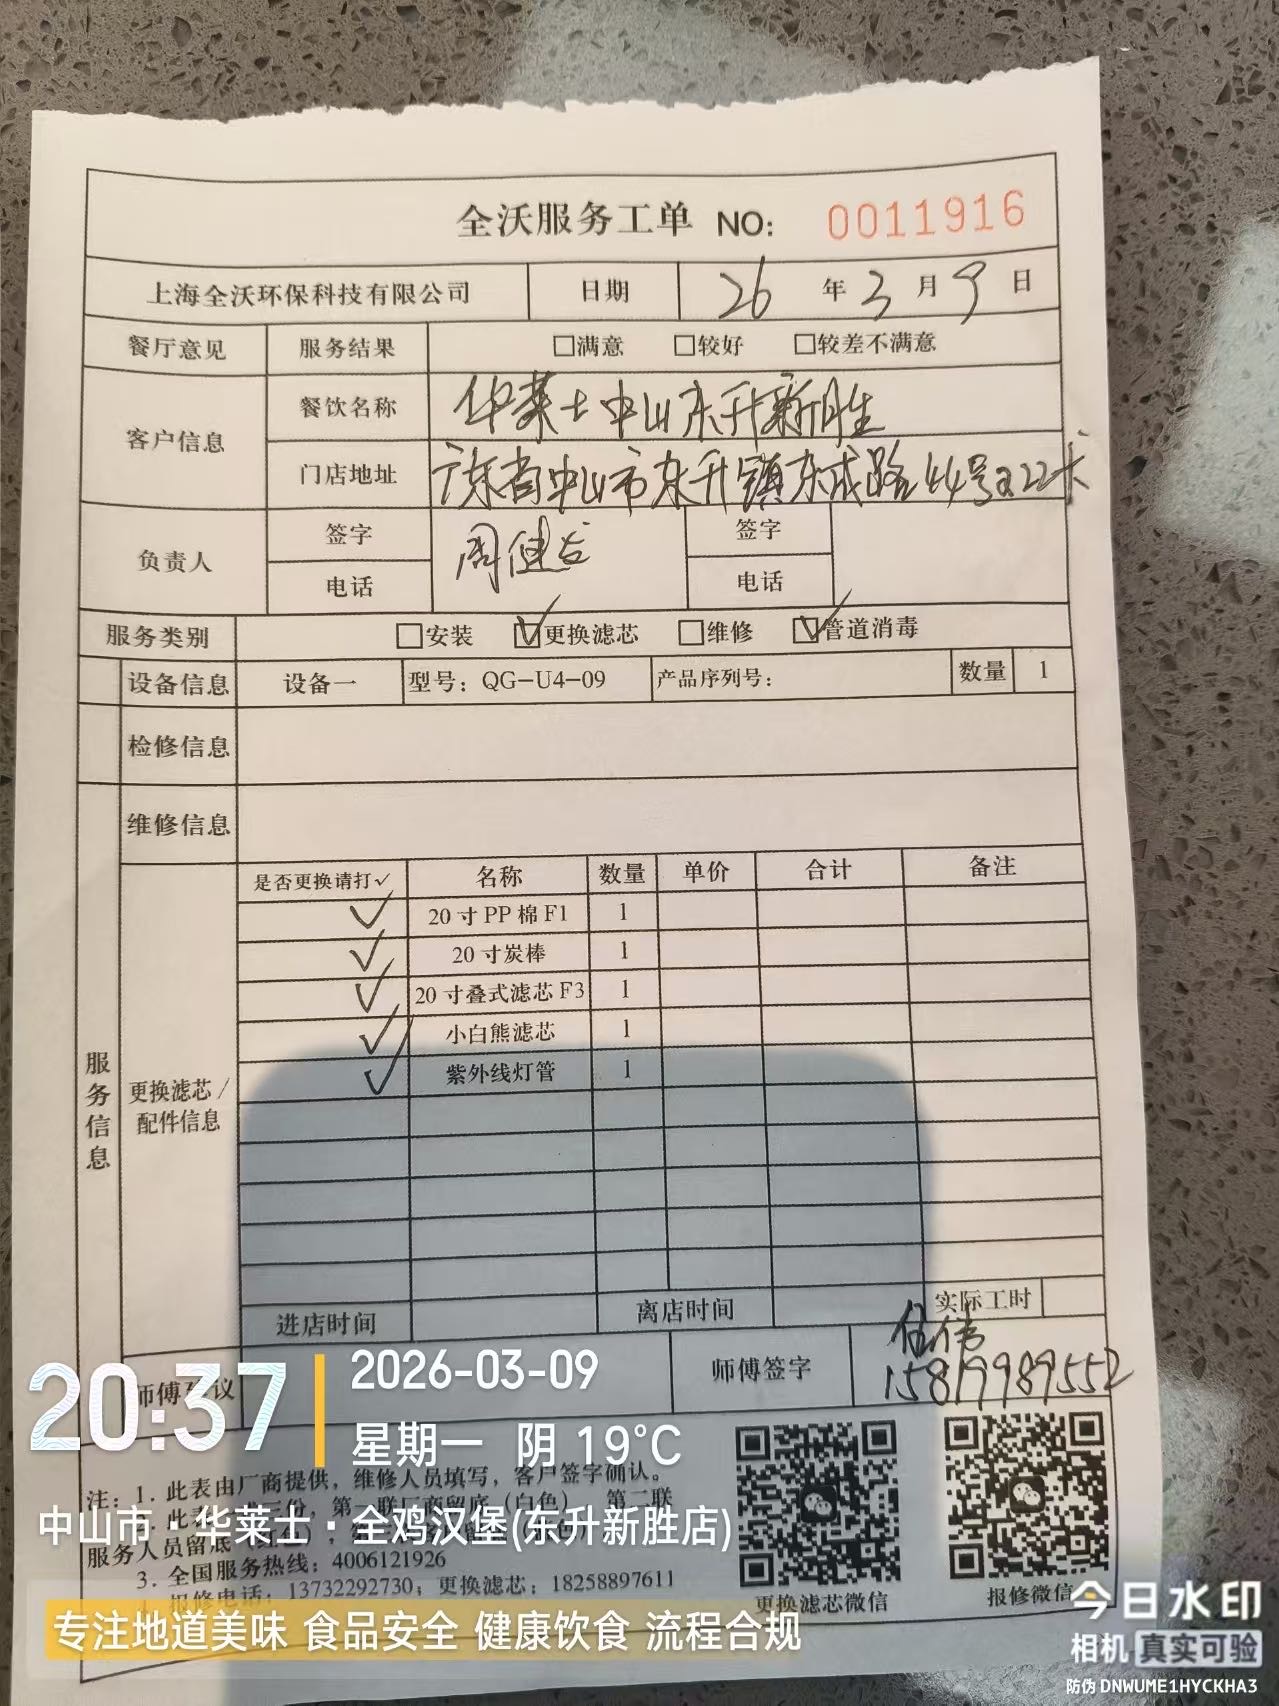 全沃服务工单 NO: 0011916
上海全沃环保科技有限公司 日期 26 年 3 月 9 日
餐厅意见 服务结果 □满意 □较好 □较差不满意
客户信息 餐饮名称 华莱士中山东升新胜
门店地址 广东省中山市东升镇东成路44号之22卡
负责人 签字 周健 签字
电话 电话
服务类别 □安装 ☑更换滤芯 □维修 ☑管道消毒
设备信息 设备一 型号：QG-U4-09 产品序列号： 数量 1
检修信息
维修信息
服务信息
更换滤芯/
配件信息
是否更换请打✓ 名称 数量 单价 合计 备注
✓ 20寸PP棉F1 1
✓ 20寸炭棒 1
✓ 20寸叠式滤芯F3 1
✓ 小白熊滤芯 1
✓ 紫外线灯管 1
进店时间 离店时间 实际工时
师傅 议 师傅签字 伟
15819989552
20:37 2026-03-09
星期一 阴 19℃
注：1. 此表由厂商提供，维修人员填写，客户签字确认。
此表 三份，第一联厂商留底（白色） 第二联
中山市·华莱士·全鸡汉堡(东升新胜店)
服务人员留底
3. 全国服务热线：4006121926
报修电话：13732292730；更换滤芯：18258897611
更换滤芯微信 报修微信
专注地道美味 食品安全 健康饮食 流程合规
今日水印
相机 真实可验
防伪 DNWUME1HYCKHA3